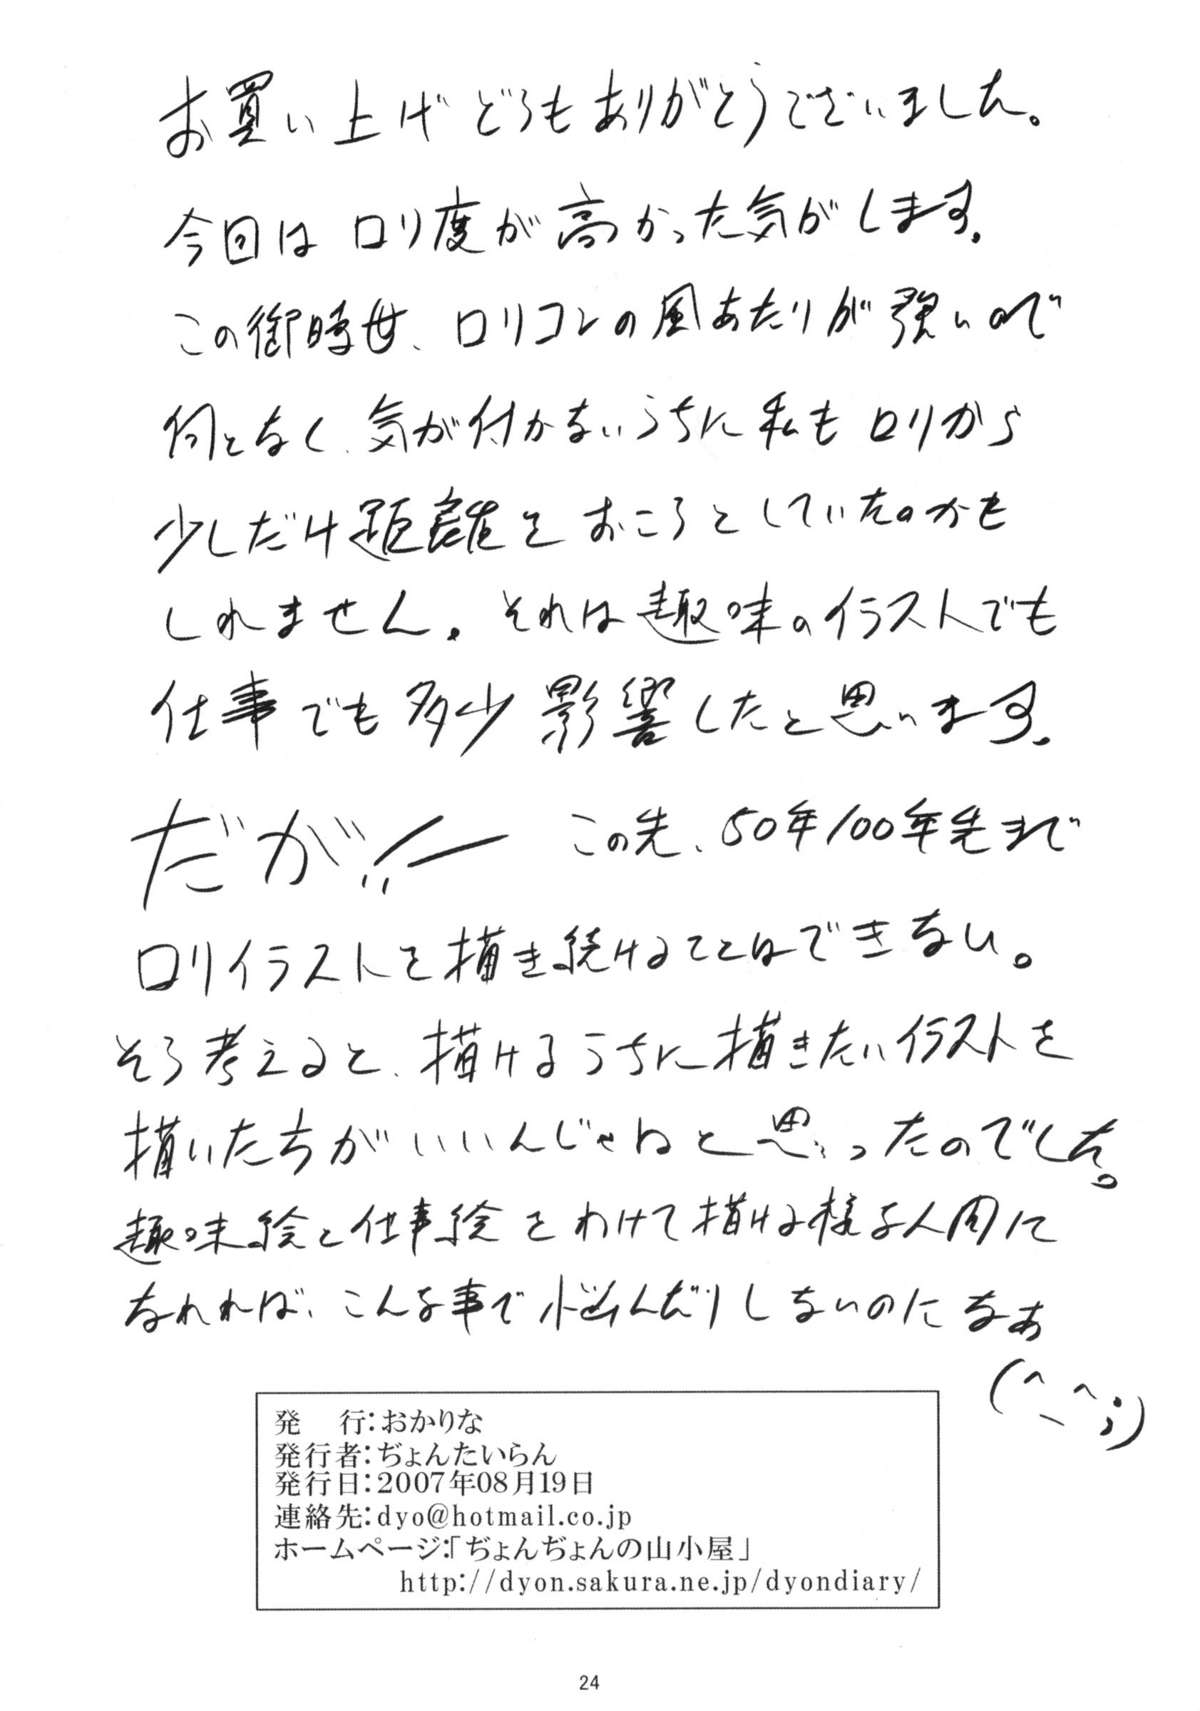 お買い上げどうもありがとうございました。
今回はロリ度が高かった気がします。
この御時世、ロリコンの風あたりが強いので
何となく、気が付かないうちに私もロリから
少しだけ距離をおこうとしていたのかも
しれません。それは趣味のイラストでも
仕事でも多少影響したと思います。
だが!! この先、50年100年先まで
ロリイラストを描き続けることはできない。
そう考えると、描けるうちに描きたいイラストを
描いたちがいいんじゃねと思ったのでした。
趣味絵と仕事絵をわけて描ける様な人間に
なれれば、こんな事で悩んだりしないのになぁ
(^_^;)
発 行:おかりな
発行者:ぢょんたいらん
発行日:2007年08月19日
連絡先:dyo@hotmail.co.jp
ホームページ:「ぢょんぢょんの山小屋」
http://dyon.sakura.ne.jp/dyondiary/
24